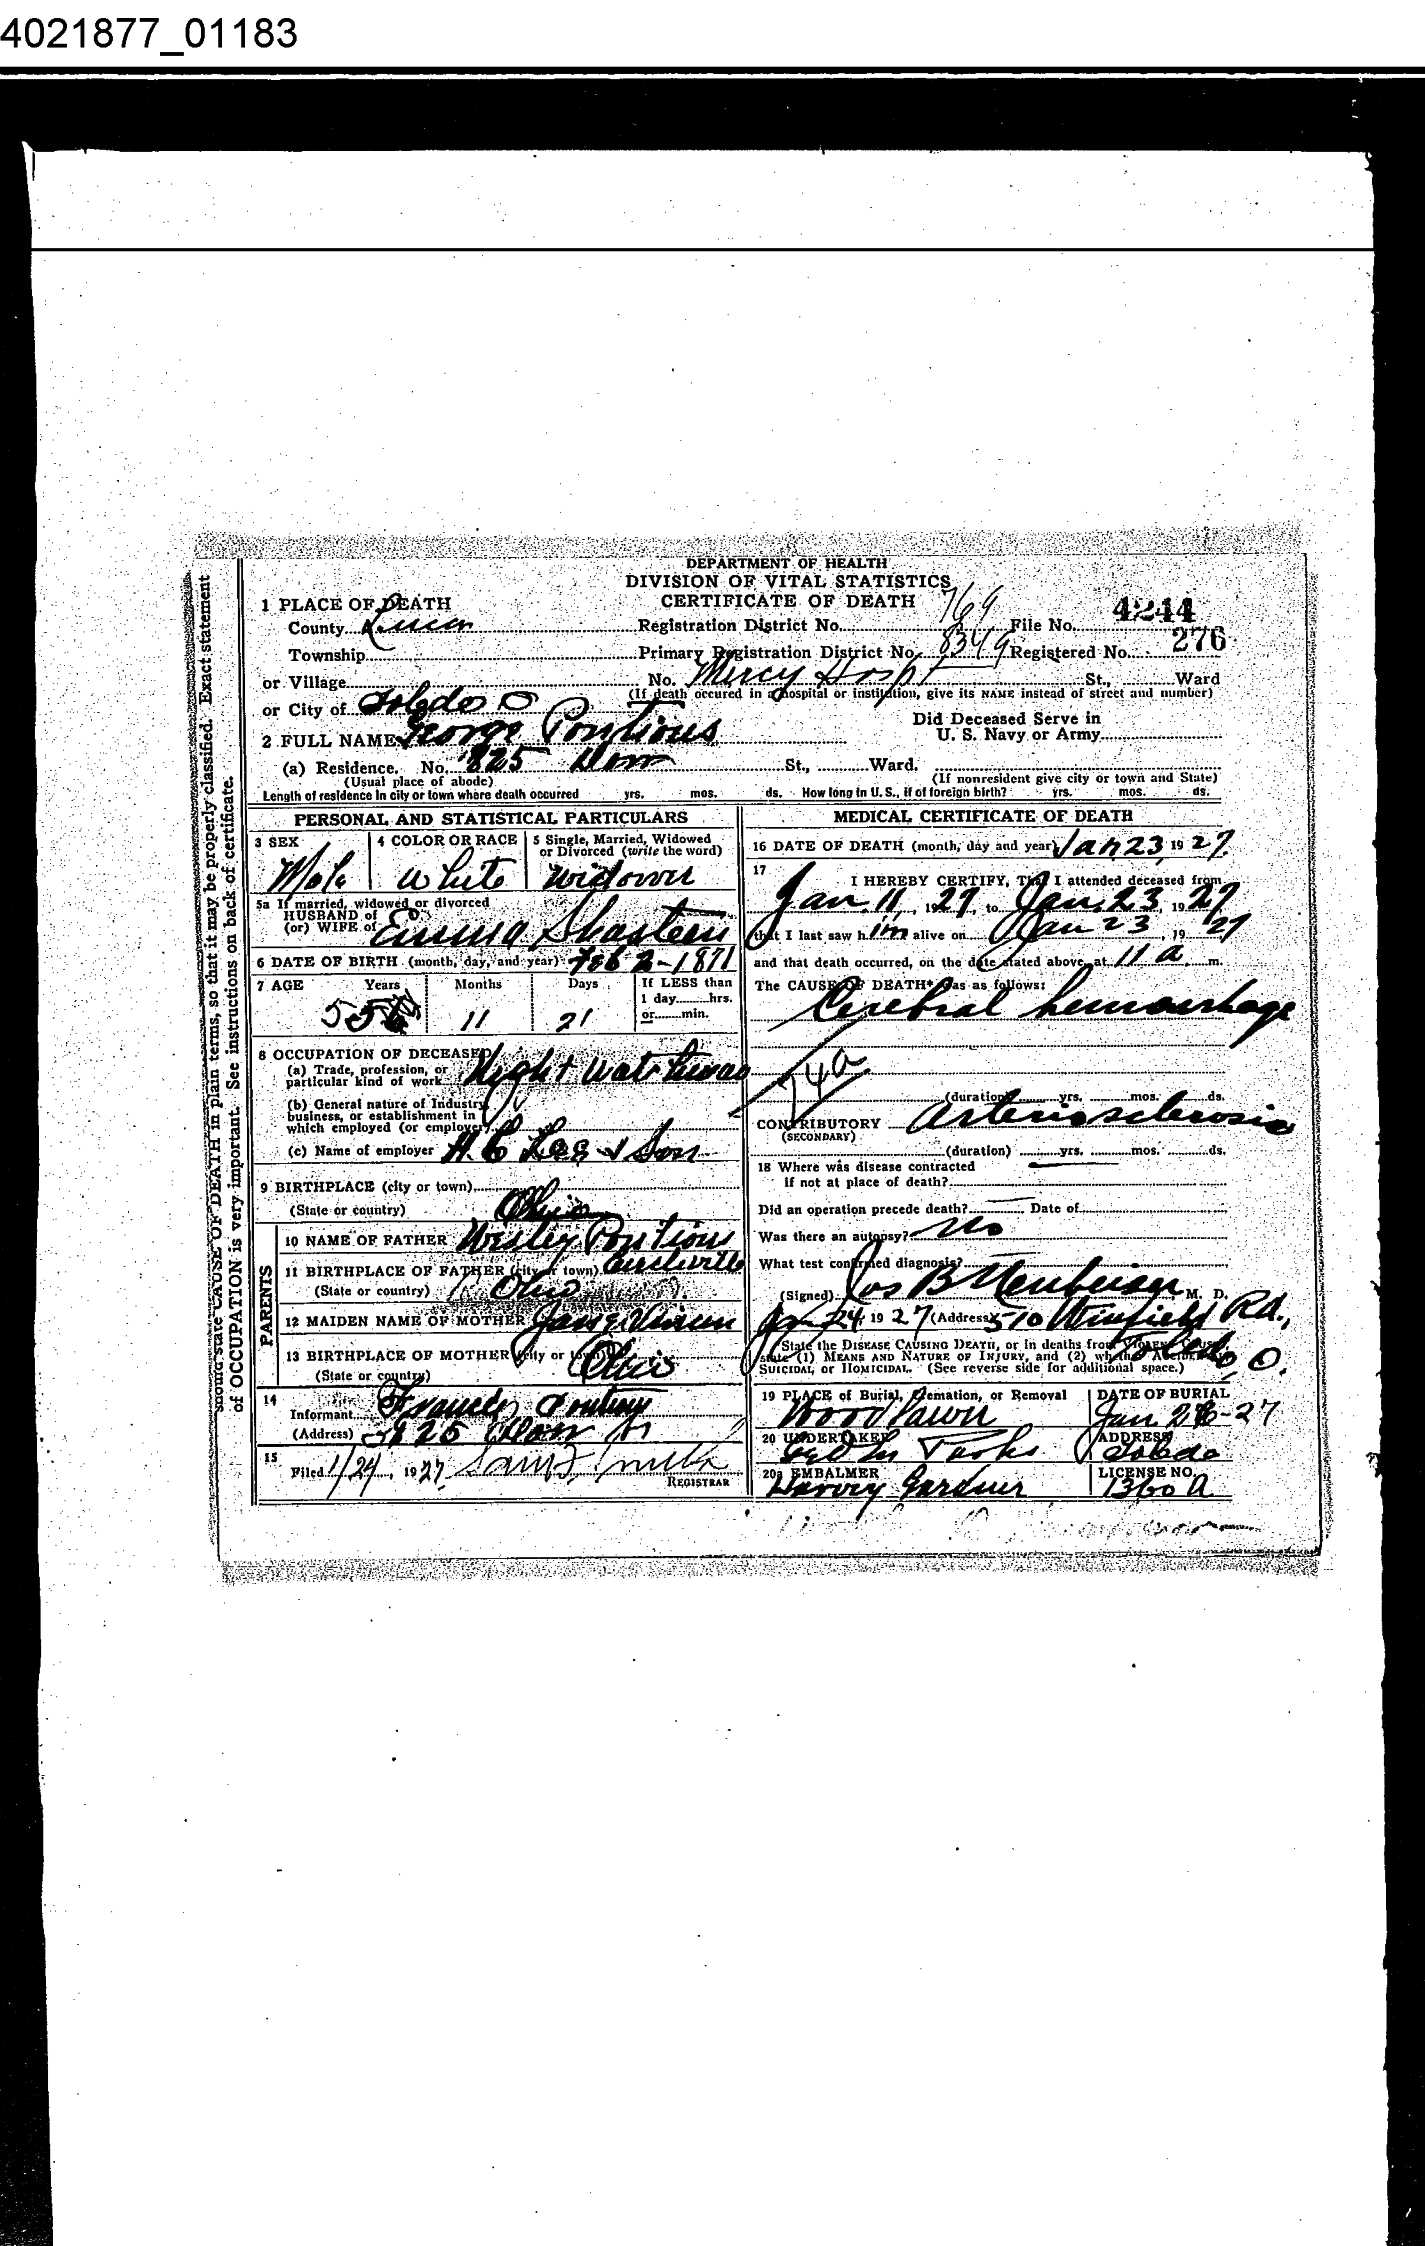 4021877_01183
DEPARTMENT OF HEALTH
DIVISION OF VITAL STATISTICS
CERTIFICATE OF DEATH
1 PLACE OF DEATH
County Lucas Registration District No. 769 File No. 4244
Township Primary Registration District No. 8349 Registered No. 276
or Village No. Mercy Hospt St., Ward
(If death occured in a hospital or institution, give its NAME instead of street and number)
or City of Toledo O
Did Deceased Serve in
U. S. Navy or Army
2 FULL NAME George Pontious
(a) Residence, No. 825 St., Ward.
(Usual place of abode) (If nonresident give city or town and State)
Length of residence in city or town where death occurred yrs. mos. ds. How long in U. S., if of foreign birth? yrs. mos. ds.
PERSONAL AND STATISTICAL PARTICULARS
3 SEX 4 COLOR OR RACE 5 Single, Married, Widowed
or Divorced (write the word)
Male White Widower
5a If married, widowed or divorced
HUSBAND of
(or) WIFE of Emma Shasteen
6 DATE OF BIRTH (month, day, and year) Feb 2-1871
7 AGE Years Months Days If LESS than
1 day hrs.
or min.
55 11 21
8 OCCUPATION OF DECEASED
(a) Trade, profession, or
particular kind of work Night Watchman
(b) General nature of Industry,
business, or establishment in
which employed (or employer)
(c) Name of employer H. C. & Son
9 BIRTHPLACE (city or town)
(State or country) Ohio
PARENTS
10 NAME OF FATHER Wesley Pontious
11 BIRTHPLACE OF FATHER (city or town) Circleville
(State or country) Ohio
12 MAIDEN NAME OF MOTHER Jane
13 BIRTHPLACE OF MOTHER (city or town)
(State or country) Ohio
14
Informant Pontious
(Address) 825
15
Filed 1/24, 1927
REGISTRAR
MEDICAL CERTIFICATE OF DEATH
16 DATE OF DEATH (month, day and year) Jan 23, 1927
17
I HEREBY CERTIFY, That I attended deceased from
Jan. 11, 1927, to Jan. 23, 1927
that I last saw him alive on Jan 23, 1927
and that death occurred, on the date stated above, at 11 a. m.
The CAUSE OF DEATH* was as follows:
Cerebral hemorrhage
74a
(duration) yrs. mos. ds.
CONTRIBUTORY Arteriosclerosis
(SECONDARY)
(duration) yrs. mos. ds.
18 Where was disease contracted
if not at place of death?
Did an operation precede death? Date of
Was there an autopsy? No
What test confirmed diagnosis?
(Signed) Jos B M. D.
Jan 24, 1927 (Address) 510 Winfield Rd.,
Toledo, O.
State the DISEASE CAUSING DEATH, or in deaths from VIOLENT CAUSES,
state (1) MEANS AND NATURE OF INJURY, and (2) whether ACCIDENTAL,
SUICIDAL, OR HOMICIDAL. (See reverse side for additional space.)
19 PLACE of Burial, Cremation, or Removal DATE OF BURIAL
Woodlawn Jan 26-27
20 UNDERTAKER ADDRESS
Geo M Parks Toledo
20a EMBALMER LICENSE NO.
Harvey Gardner 1360 A
should state CAUSE OF DEATH in plain terms, so that it may be properly classified. Exact statement
of OCCUPATION is very important. See instructions on back of certificate.